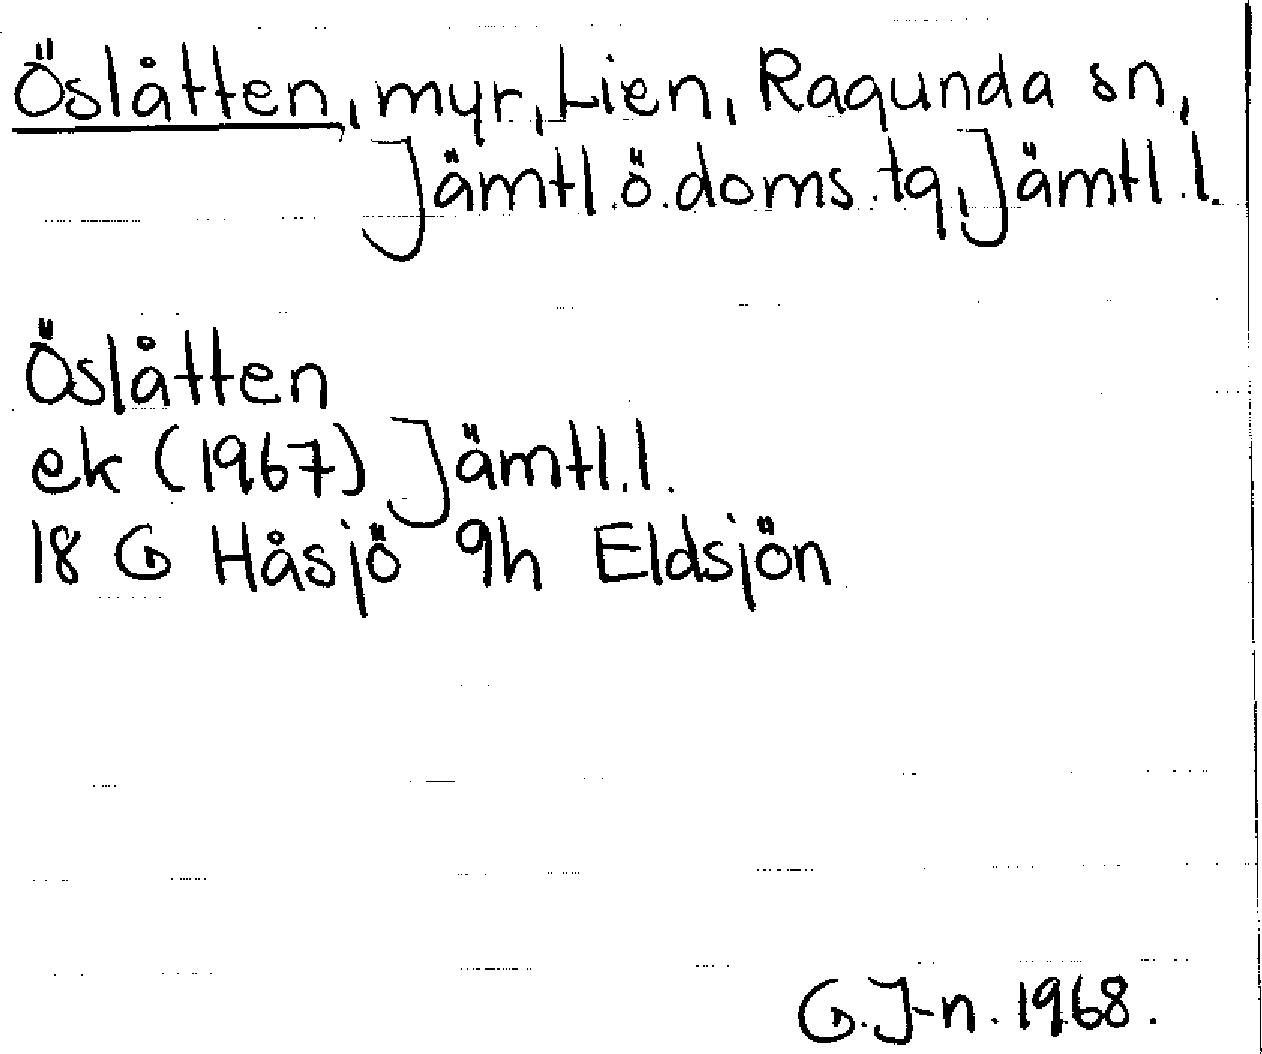 Öslåtten, myr, Lien, Ragunda sn,
Jämtl.ö.doms.tg, Jämtl.l.
Öslåtten
ek (1967) Jämtl.l.
18 G Håsjö 9h Eldsjön
G.J-n. 1968.